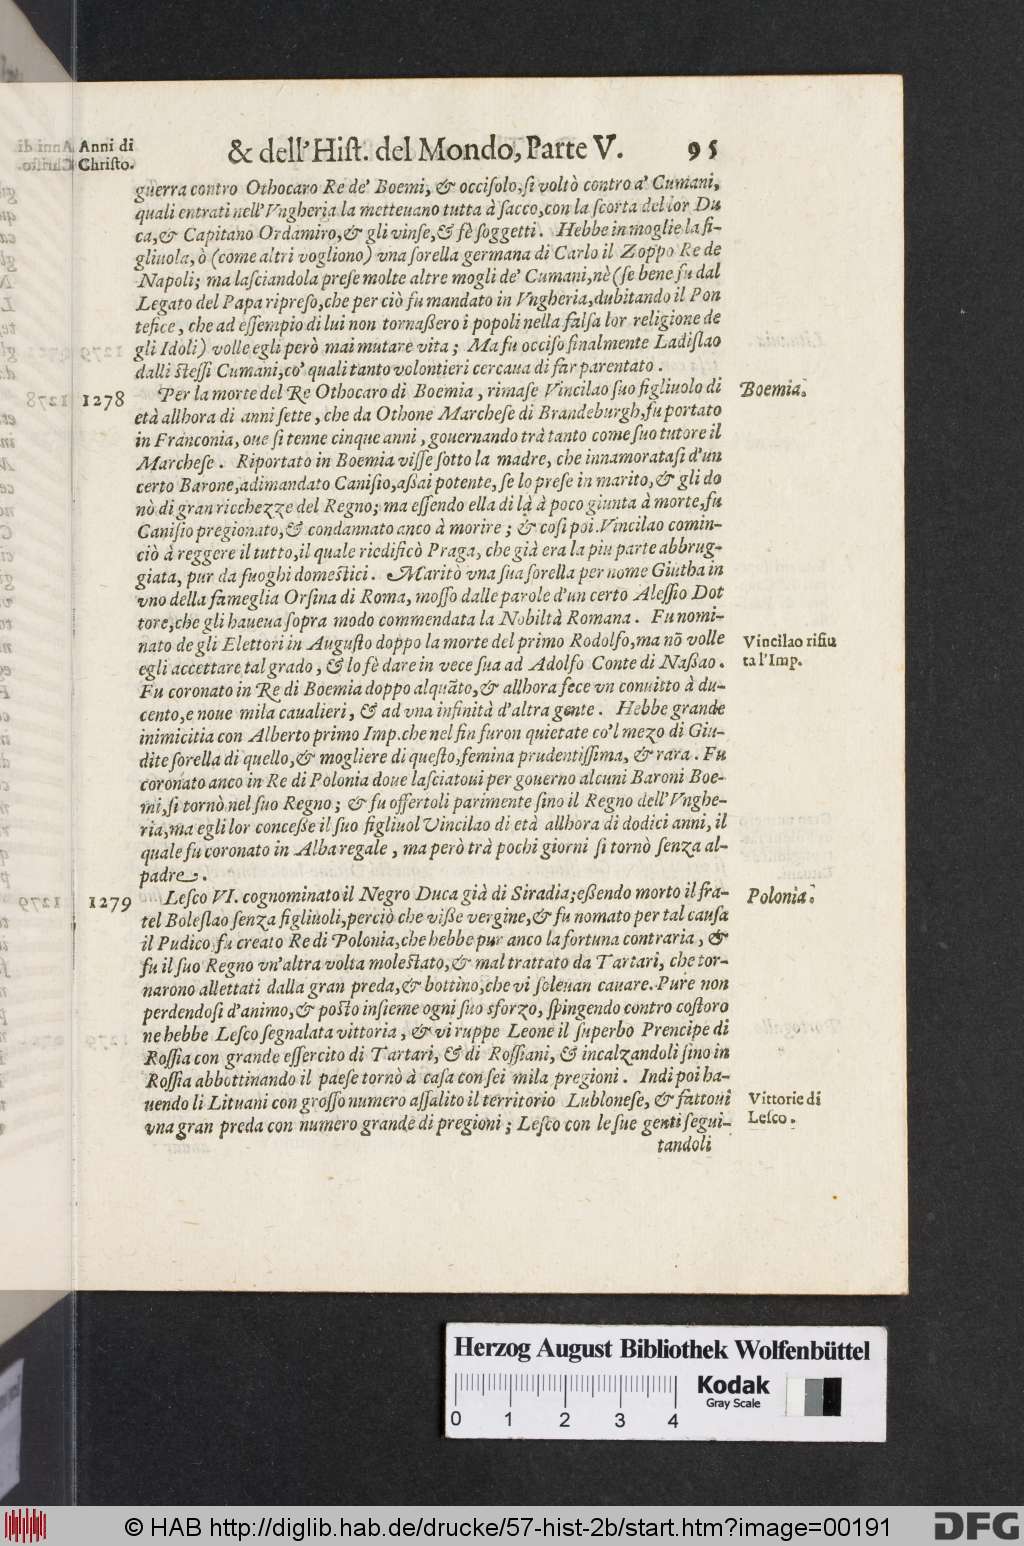 Anni di
Christo.
& dell'Hiſt. del Mondo, Parte V. 95
guerra contro Othocaro Re de' Boemi, & occiſolo, ſi voltò contro a' Cumani,
quali entrati nell'Vngheria la metteuano tutta à ſacco, con la ſcorta del lor Du
ca, & Capitano Ordamiro, & gli vinſe, & fè ſoggetti. Hebbe in moglie la fi-
gliuola, ò (come altri vogliono) vna ſorella germana di Carlo il Zoppo Re de
Napoli; ma laſciandola preſe molte altre mogli de' Cumani, nè (ſe bene fu dal
Legato del Papa ripreſo, che per ciò fu mandato in Vngheria, dubitando il Pon
tefice, che ad eſſempio di lui non tornaßero i popoli nella falſa lor religione de
gli Idoli) volle egli però mai mutare vita; Ma fu occiſo finalmente Ladiſlao
dalli steſſi Cumani, co' quali tanto volontieri cercaua di far parentato.
1278 Per la morte del Re Othocaro di Boemia, rimaſe Vincilao ſuo figliuolo di Boemia.
età allhora di anni ſette, che da Othone Marcheſe di Brandeburgh, fu portato
in Franconia, oue ſi tenne cinque anni, gouernando trà tanto come ſuo tutore il
Marcheſe. Riportato in Boemia viſſe ſotto la madre, che innamorataſi d'un
certo Barone, adimandato Caniſio, aßai potente, ſe lo preſe in marito, & gli do
nò di gran ricchezze del Regno; ma eſſendo ella di là à poco giunta à morte, fu
Caniſio pregionato, & condannato anco à morire; & coſi poi Vincilao comin-
ciò à reggere il tutto, il quale riedificò Praga, che già era la piu parte abbrug-
giata, pur da fuoghi domestici. Maritò vna ſua ſorella per nome Giutha in
vno della fameglia Orſina di Roma, moſſo dalle parole d'un certo Aleſſio Dot
tore, che gli haueua ſopra modo commendata la Nobiltà Romana. Fu nomi-
nato de gli Elettori in Auguſto doppo la morte del primo Rodolfo, ma nõ volle Vincilao rifiu
egli accettare tal grado, & lo fè dare in vece ſua ad Adolfo Conte di Naßao. ta l'Imp.
Fu coronato in Re di Boemia doppo alquãto, & allhora fece vn conuitto à du-
cento, e noue mila caualieri, & ad vna infinità d'altra gente. Hebbe grande
inimicitia con Alberto primo Imp. che nel fin furon quietate co'l mezo di Giu-
dite ſorella di quello, & mogliere di queſto, femina prudentiſſima, & rara. Fu
coronato anco in Re di Polonia doue laſciatoui per gouerno alcuni Baroni Boe-
mi, ſi tornò nel ſuo Regno; & fu offertoli parimente ſino il Regno dell'Vnghe-
ria, ma egli lor conceße il ſuo figliuol Vincilao di età allhora di dodici anni, il
quale fu coronato in Alba regale, ma però trà pochi giorni ſi tornò ſenza al-
padre.
1279 Leſco VI. cognominato il Negro Duca già di Siradia; eßendo morto il fra- Polonia.
tel Boleſlao ſenza figliuoli, perciò che viße vergine, & fu nomato per tal cauſa
il Pudico fu creato Re di Polonia, che hebbe pur anco la fortuna contraria, &
fu il ſuo Regno vn'altra volta molestato, & mal trattato da Tartari, che tor-
narono allettati dalla gran preda, & bottino, che vi ſoleuan cauare. Pure non
perdendoſi d'animo, & posto inſieme ogni ſuo sforzo, ſpingendo contro coſtoro
ne hebbe Leſco ſegnalata vittoria, & vi ruppe Leone il ſuperbo Prencipe di
Roſſia con grande eſſercito di Tartari, & di Roſſiani, & incalzandoli ſino in
Roſſia abbottinando il paeſe tornò à caſa con ſei mila pregioni. Indi poi ha-
uendo li Lituani con groſſo numero aſſalito il territorio Lubloneſe, & fattoui Vittorie di
vna gran preda con numero grande di pregioni; Leſco con le ſue genti ſegui- Leſco.
tandoli
Herzog August Bibliothek Wolfenbüttel
Kodak
Gray Scale
0 1 2 3 4
© HAB http://diglib.hab.de/drucke/57-hist-2b/start.htm?image=00191
DFG